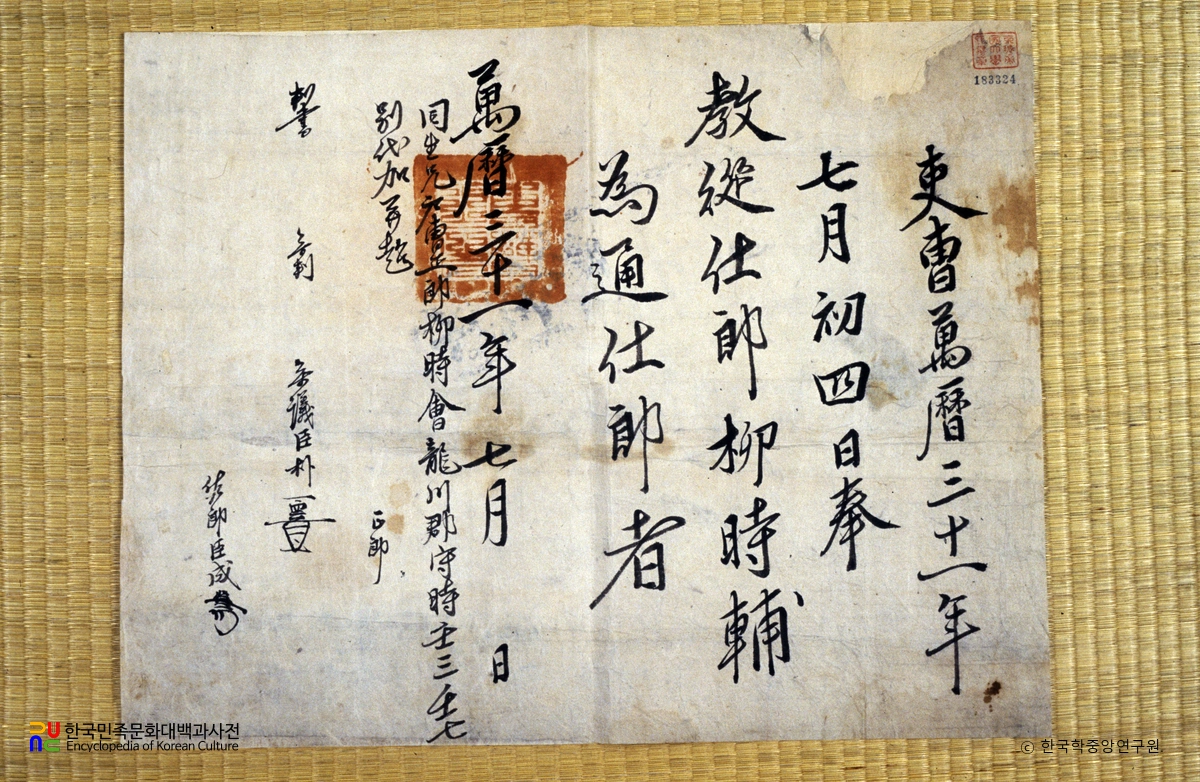 吏曹萬曆三十一年
七月初四日奉
教從仕郎柳時輔
為通仕郎者
萬曆三十一年七月 日
同生兄禮曹正郎柳時會龍川郡守時壬三壬七
別代加
正郎
判書
參判
參議臣朴
佐郎臣成
183324
한국민족문화대백과사전
Encyclopedia of Korean Culture
ⓒ 한국학중앙연구원